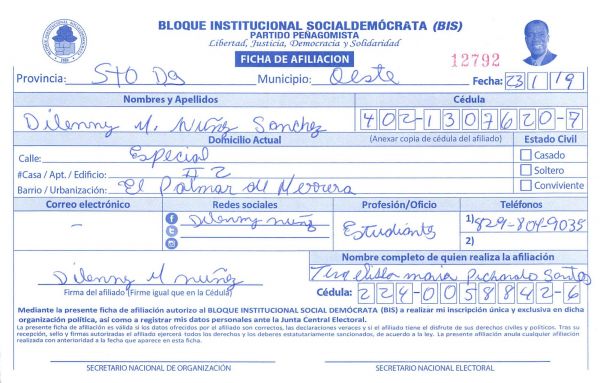 BLOQUE INSTITUCIONAL SOCIALDEMÓCRATA (BIS)
PARTIDO PEÑAGOMISTA
Libertad, Justicia, Democracia y Solidaridad
FICHA DE AFILIACION
12792
Provincia: STO Dgo Municipio: Oeste Fecha: 23/1/19
Nombres y Apellidos Cédula
Dilenny M. Nuñez Sanchez 402-1307620-7
Domicilio Actual (Anexar copia de cédula del afiliado) Estado Civil
Calle: Especial Casado
#Casa / Apt. / Edificio: #2 Soltero
Barrio / Urbanización: El Palmar de Herrera Conviviente
Correo electrónico Redes sociales Profesión/Oficio Teléfonos
- Dilenny nuñz Estudiante 1) 829-804-9035
2)
Nombre completo de quien realiza la afiliación
Dilenny M nuñez maria Pichardo Santos
Firma del afiliado (Firme igual que en la Cédula) Cédula: 224-0058842-6
Mediante la presente ficha de afiliación autorizo al BLOQUE INSTITUCIONAL SOCIAL DEMÓCRATA (BIS) a realizar mi inscripción única y exclusiva en dicha
organización política, así como a registrar mis datos personales ante la Junta Central Electoral.
La presente ficha de afiliación es válida si los datos ofrecidos por el afiliado son correctos, las declaraciones veraces y si el afiliado tiene el disfrute de sus derechos civiles y políticos. Tras su
recepción, sello y firmas autorizadas el afiliado ejercerá todos los derechos y los deberes estatutariamente sancionados, de acuerdo a la ley. La presente afiliación anula cualquier afiliación
realizada con anterioridad a la fecha que aparece en esta ficha.
SECRETARIO NACIONAL DE ORGANIZACIÓN SECRETARIO NACIONAL ELECTORAL